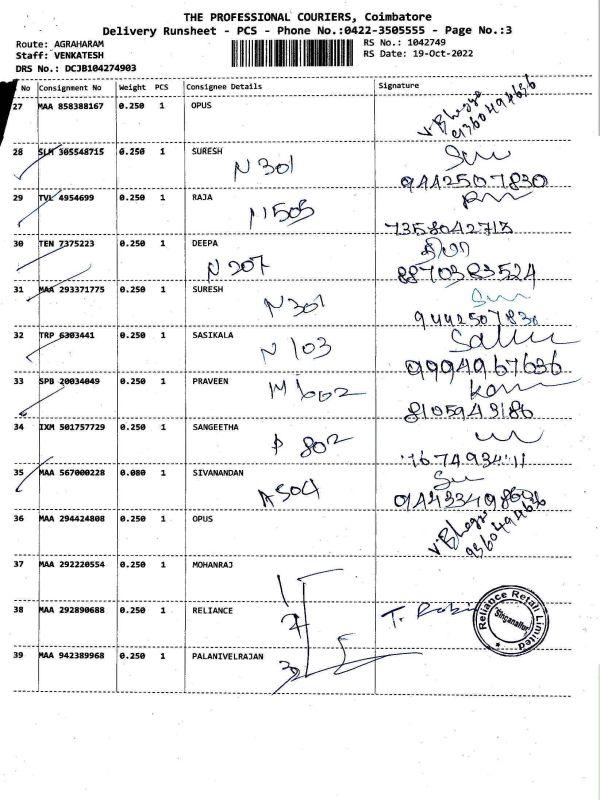 THE PROFESSIONAL COURIERS, Coimbatore
Delivery Runsheet - PCS - Phone No.:0422-3505555 - Page No.:3
Route: AGRAHARAM
Staff: VENKATESH
DRS No.: DCJB104274903
RS No.: 1042749
RS Date: 19-Oct-2022
No Consignment No Weight PCS Consignee Details Signature
27 MAA 858388167 0.250 1 OPUS
9360494636
28 SLM 305548715 0.250 1 SURESH
N 301
9442507830
29 TVL 4954699 0.250 1 RAJA
N505
7358042713
30 TEN 7375223 0.250 1 DEEPA
N 207
தீபா
8870383524
31 MAA 293371775 0.250 1 SURESH
N 301
9442507830
32 TRP 6303441 0.250 1 SASIKALA
N 103
9994967636
33 SPB 20034049 0.250 1 PRAVEEN
M 602
8105943186
34 IXM 501757729 0.250 1 SANGEETHA
P 802
35 MAA 567000228 0.080 1 SIVANANDAN
A504
36 MAA 294424808 0.250 1 OPUS
9360494636
37 MAA 292220554 0.250 1 MOHANRAJ
1
38 MAA 292890688 0.250 1 RELIANCE
2
Reliance Retail Limited
Singanallur
39 MAA 942389968 0.250 1 PALANIVELRAJAN
3